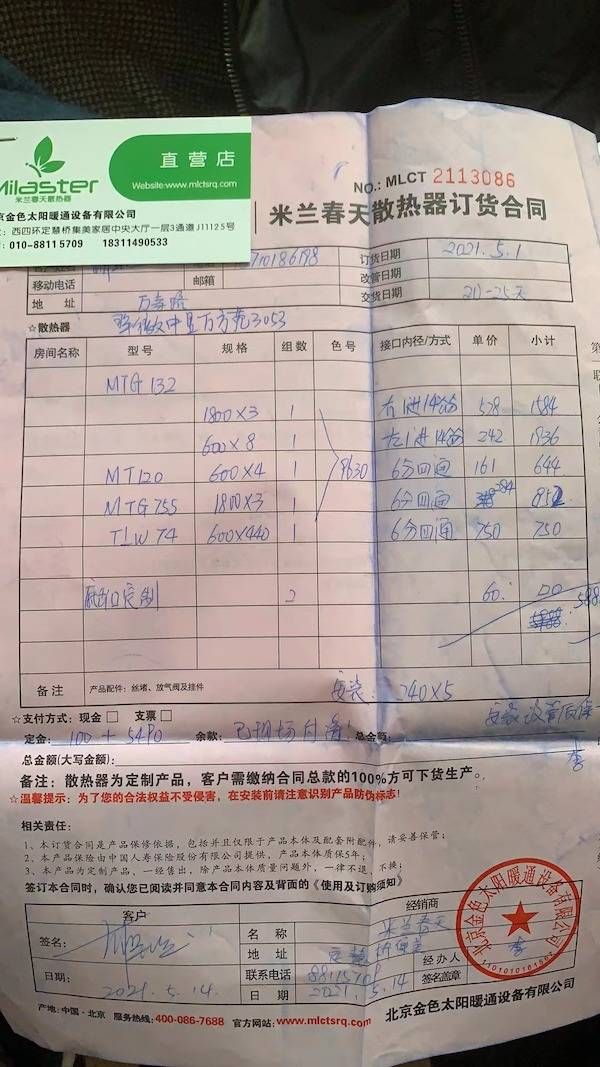 Milaster
米兰春天散热器
直营店
Website:www.mlctsrq.com
京金色太阳暖通设备有限公司
: 西四环定慧桥集美家居中央大厅一层3通道J11125号
: 010-88115709 18311490533
NO.: MLCT 2113086
米兰春天散热器订货合同
订货日期 2021.5.1
移动电话 邮箱 改管日期
地址 万寿路 交货日期 20-25天
☆散热器
房间名称 型号 规格 组数 色号 接口内径/方式 单价 小计
MTG 132
1800×3 1 右1进14翁 528 1584
600×8 1 左1进14翁 242 1936
MT120 600×4 1 9630 6分四通 161 644
MTG 755 1800×3 1 6分四通 284 852
TLW 74 600×440 1 6分四通 750 750
2 60.
备注 产品配件：丝堵、放气阀及挂件 安装: 240×5
☆支付方式：现金 □ 支票 □
定金: 100 + 5490 余款: 已现场付清 总金额:
总金额(大写金额):
备注：散热器为定制产品，客户需缴纳合同总款的100%方可下货生产。
☆温馨提示：为了您的合法权益不受侵害，在安装前请注意识别产品防伪标志！
相关责任：
1、本订货合同是产品保修依据，包括并且仅限于产品本体及配套附配件，请妥善保管；
2、本产品保险由中国人寿保险股份有限公司提供，产品本体质保5年；
3、本产品为定制产品，一经售出，除产品本体质量问题外，一律不退、不换；
签订本合同时，确认您已阅读并同意本合同内容及背面的《使用及订购须知》
客户 经销商
签名: 名称 米兰春天
地址 定慧桥集美 经办人 李
联系电话 88115709 签名盖章
日期: 2021.5.14. 日期 2021.5.14
北京金色太阳暖通设备有限公司
产地:中国·北京 服务热线:400-086-7688 官方网站:www.mlctsrq.com 北京金色太阳暖通设备有限公司